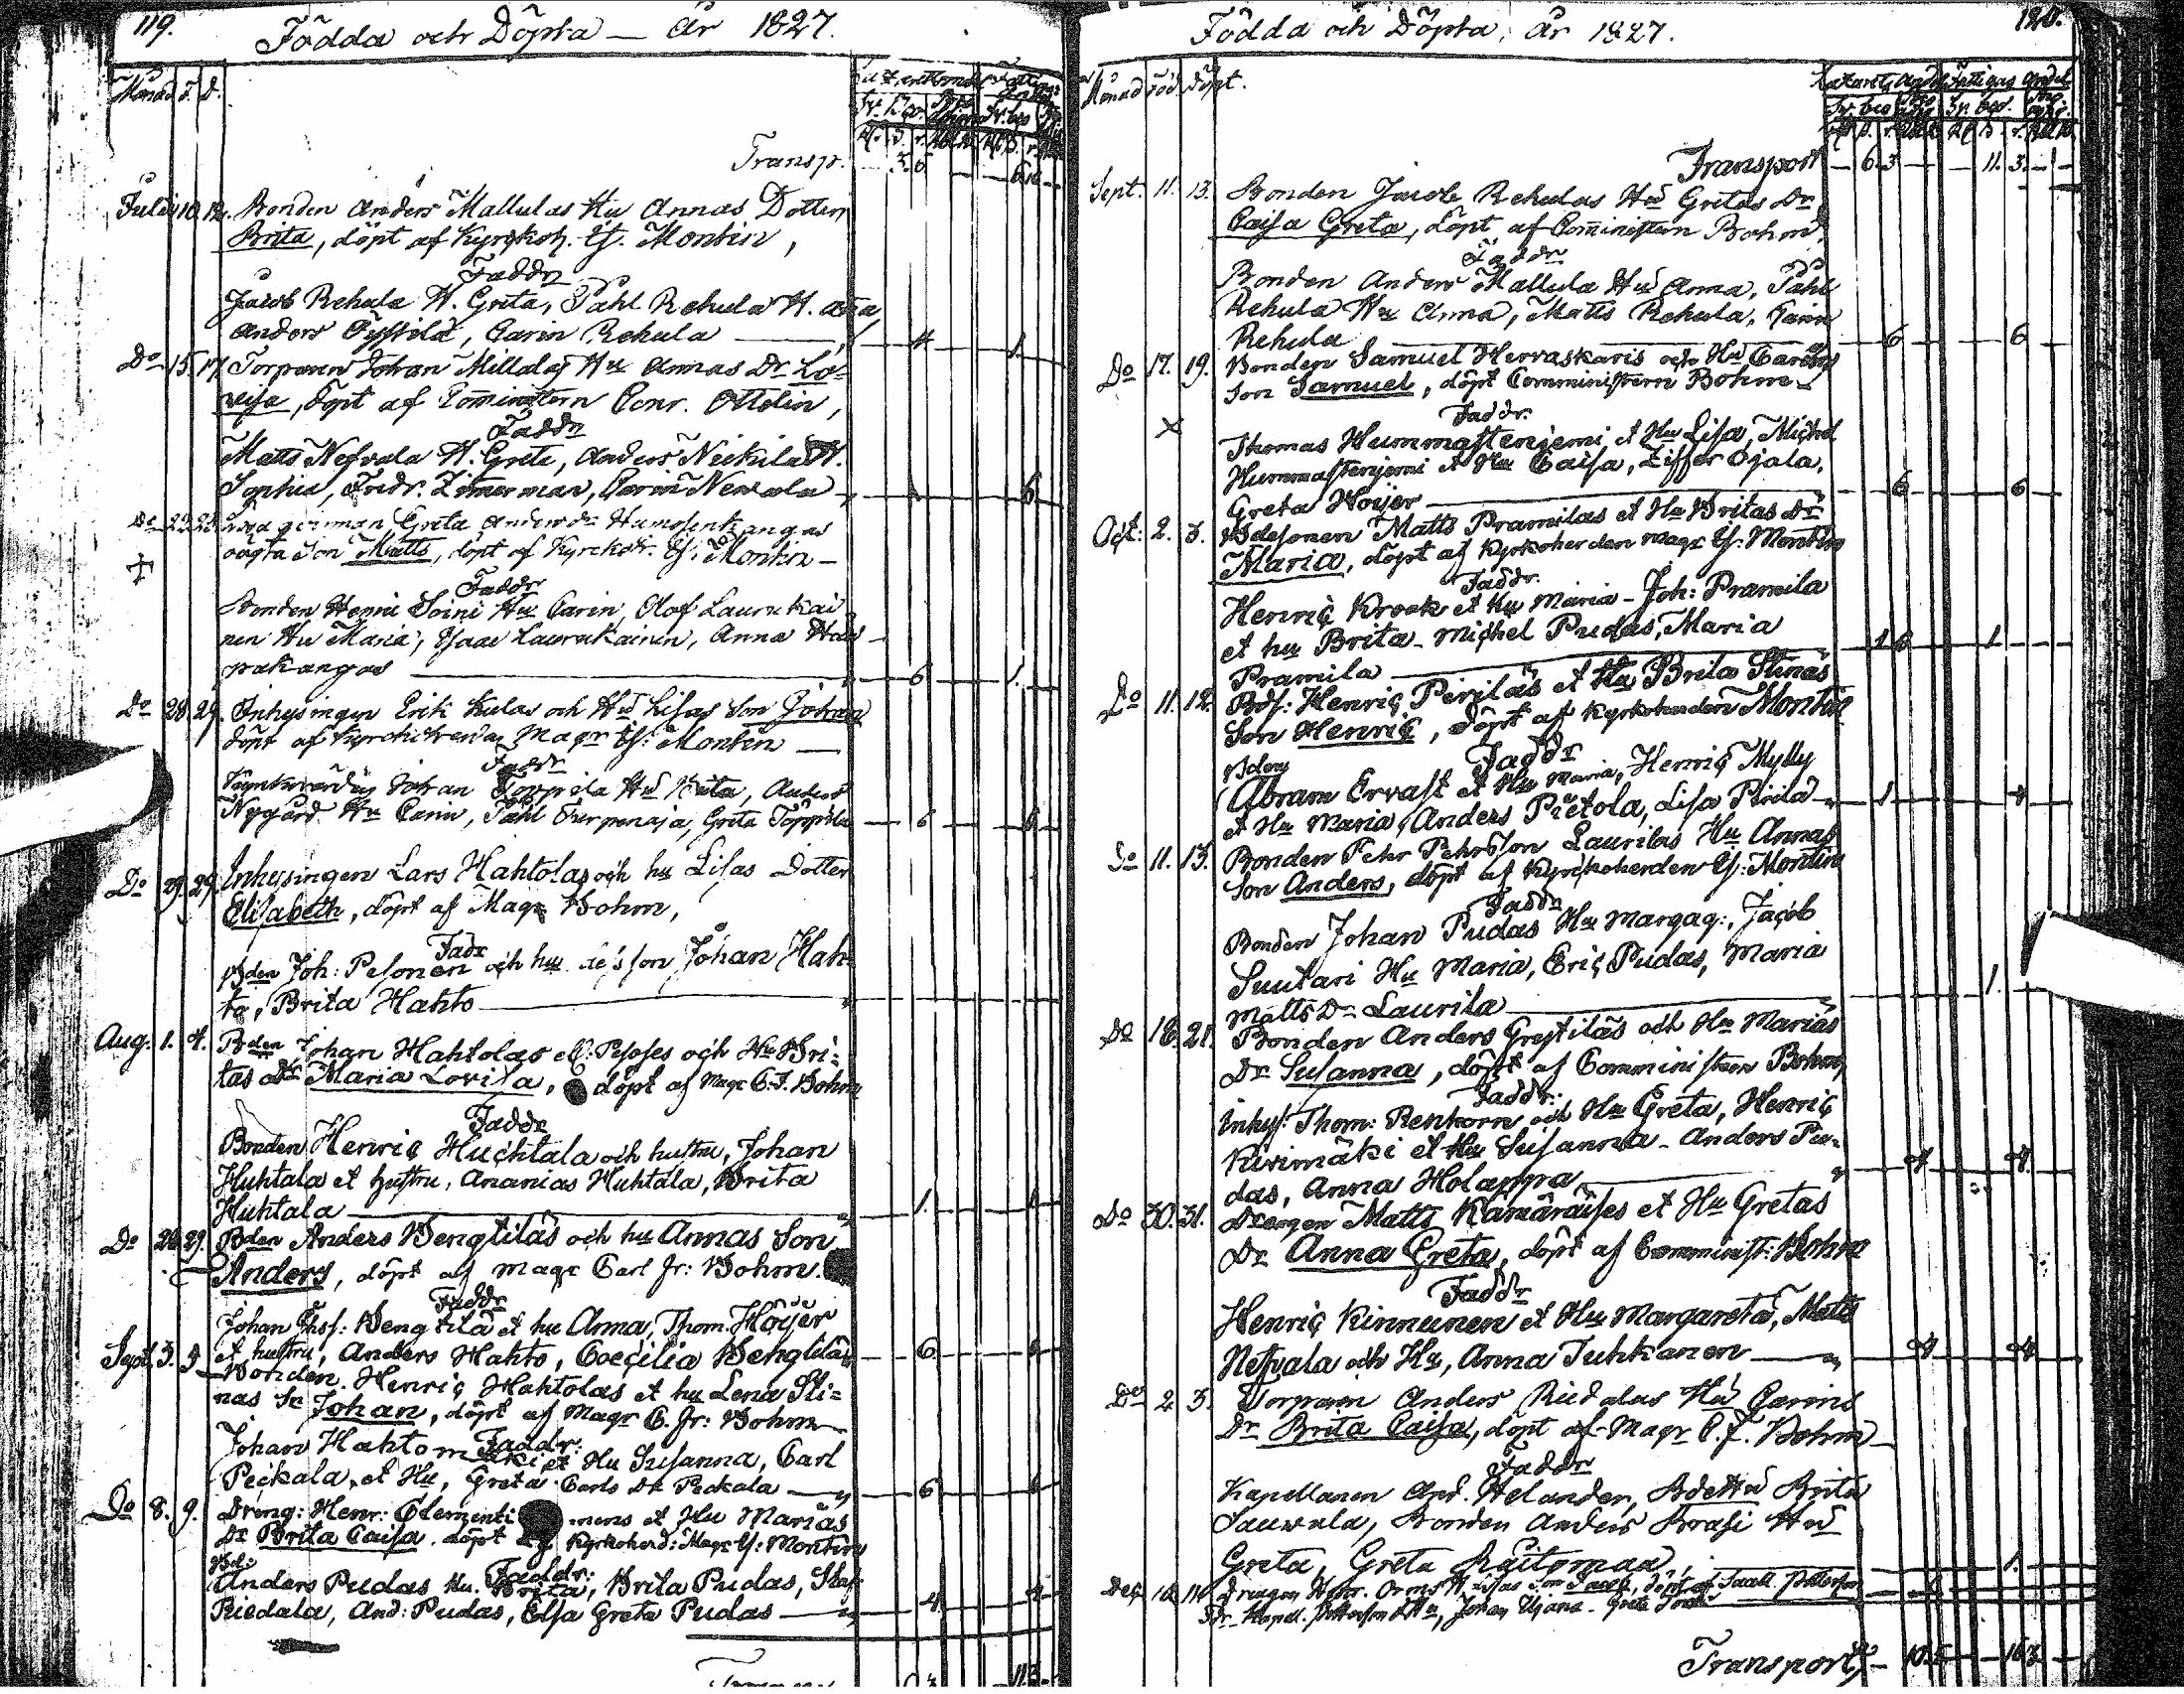 119.
Födda och Döpta — År 1827.
Månad F. D.
Transp.
Julii 10. 12. Bonden Anders Mallulas Hu Annas Dotter
Brita, döpt af Kyrkoh. Es. Montin,
Faddr
Jacob Rehula H. Greta, Påhl Rehula H. Anna,
Anders, Carin Rehula
Do 15. 17. Torparen Johan Millaløs Hu Annas Dr Lo-
visa, döpt af Cominstern Conr. Ottelin,
Faddr
Matts Nefvala H. Greta, Anders Nickila H.
Sophia, Fredr. Zimerman, Carin Newala
Do Greta Andersdr
oägta Son Matts, döpt af Kyrckoh. Es. Montin —
Faddr
Bonden Henric Soini Hu Carin, Olof Laurukai
nen Hu Maria, Isaac Laurukainen, Anna Haa
pakangas
Do 28. 29. Inhysingen Erik Kulas och Hu Lisas Son Johan
döpt af Kyrckoherden Magr Es: Montin —
Faddr
Johan Toppila Hu Brita, Anders
Nygård Hu Carin, Påhl, Greta Toppila
Do 29. 29. Inhysingen Lars Hahtolas och hu Lisas Dotter
Elisabeth, döpt af Magr Bohm,
Fadr
Bden Joh: Pesonen och hu dess son Johan Hah-
to, Brita Hahto
Aug. 1. 4. Bden Johan Hahtolas el: Pesoses och Hu Bri-
tas Dr Maria Lovisa, döpt af Magr C. F. Bohm
Faddr
Bonden Henriç Huçhtala och hustru, Johan
Huhtala et hustru, Ananias Huhtala, Brita
Huhtala
Do 26. 29. Bden Anders Bengtiläs och hu Annas Son
Anders, döpt af Magr Carl Fr: Bohm.
Faddr
Johan Thsf: Bengtilä et hu Anna, Thom. Höijer
et hustru, Anders Hahto, Coeçilia Bengtilä
Sept. 3. 9. Bonden Henriç Hahtolas et hu Lena Sti-
nas Sn Johan, döpt af Magr C. Fr: Bohm
Faddr:
Johan Hahtomäki et Hu Susanna, Carl
Peckala, et Hu, Greta Carls Dr Peckala
Do 8. 9. Dräng: Henr: Clementi mens et Hu Marias
Dr Brita Caisa. döpt af Kyrkoherd: Magr Es: Montin
Faddr:
Bd: Anders Pudas Hu. Brita, Brita Pudas, Staf
Riedala, And: Pudas, Elsa Greta Pudas
Födda och Döpta, År 1827.
120.
Månad Föd. Döpt.
Transport — 6. 3 — 11. 3. —
Sept. 11. 13. Bonden Jacob Rehulas Hu Gretas Dr
Caisa Greta, döpt af Cominstern Bohm.
Faddr
Bonden Anders Mallula Hu Anna, Påhl
Rehula Hu Anna, Matts Rehula, Carin
Rehula 6 6
Do 17. 19. Bonden Samuel Hervaskaris och Hu Carins
Son Samuel, döpt Comministern Bohm
Faddr.
Thomas Hummastenjemi et Hu Lisa, Michel
Hummastenjemi et Hu Caisa, Ziffer Ojala,
Greta Höijer 6 6
Oct: 2. 3. Bdesonen Matts Pramilas et Hu Britas Dr
Maria, döpt af Kyrkoherden Magr Es: Montin
Faddr:
Henriç Krook et Hu Maria — Joh: Pramila
et hu Brita — Miçhel Pudas, Maria
Pramila
Do 11. 12. Bds: Henriç Periläs et Hu Brita Stinas
Son Henriç, döpt af Kyrkoherden Montin
Faddr
Bden Abram Ervast et Hu Maria, Henriç Mylly
et Hu Maria, Anders Pietola, Lisa Pirilä
Do 11. 13. Bonden Pehr Pehrsson Laurilas Hu Annas
Son Anders, döpt af Kyrckoherden Es: Montin
Faddr
Bonden Johan Pudas Hu Margag:, Jaçob
Suutari Hu Maria, Eriç Pudas, Maria
Matts Dr Laurila 1.
Do 18. 21. Bonden Anders Greftiläs och Hu Marias
Dr Susanna, döpt af Comministern Bohm,
Faddr:
Inhys: Thom: Renkorn och Hu Greta, Henriç
Kivimäki et Hu Susanna — Anders Pu-
das, Anna Holappa
Do 30. 31. Drängen Matts Kämäräises et Hu Gretas
Dr Anna Greta, döpt af Comminist: Bohm
Faddr
Henriç Kinnunen et Hu Margareta, Matts
Neffvala och Hu, Anna Tuhkanen
2. 3. Torparen Anders Riedalas Hu Carins
Dr Brita Caisa, döpt af Magr C. F. Bohm
Faddr
Kapellanen And. Helander, Brita
Sauvula, Bonden Anders Brasi Hu
Greta, Greta Raitomaa 1.
Dec. Drängen Henr. Lisas Son Jacob, döpt af Sacell. Pettersson
Transport